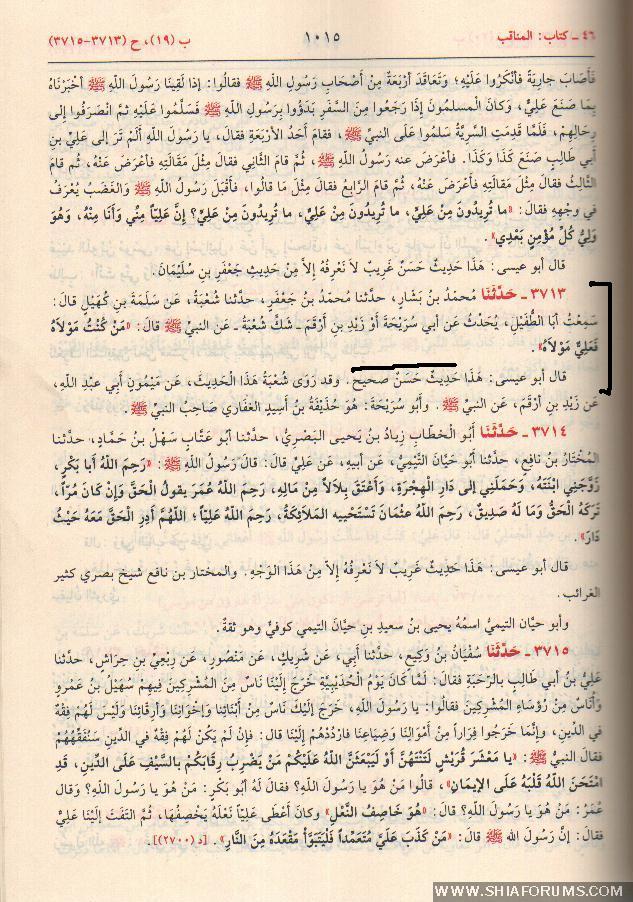 ٤٦ ـ كتاب: المناقب ١٠١٥ ب (١٩)، ح (٣٧١٣-٣٧١٥)
فَأَصَابَ جاريةً فأنْكَرُوا عَلَيْهِ؛ وتَعَاقَدَ أرْبَعَةٌ مِنْ أَصْحَابِ رَسُولِ اللهِ ﷺ فقالُوا: إذا لَقِينَا رَسُولَ اللهِ ﷺ أخْبَرْنَاهُ
بِمَا صَنَعَ عَلِيٌّ، وَكانَ المسلمُونَ إِذَا رَجَعُوا مِنَ السَّفَرِ بَدَؤُوا بِرَسُولِ اللهِ ﷺ فَسَلَّمُوا عَلَيْهِ ثمَّ انْصَرَفُوا إلى
رِحَالِهِمْ، فَلَمَّا قَدِمَتِ السَّرِيَّةُ سَلَّمُوا عَلَى النبيِّ ﷺ، فقامَ أَحَدُ الأرْبَعَةِ فقالَ، يا رَسُولَ اللهِ ألَمْ تَرَ إلى عليِّ بنِ
أبي طَالِبٍ صَنَعَ كَذَا وَكَذَا. فأعْرَضَ عنه رَسُولُ اللهِ ﷺ، ثُمَّ قامَ الثَّانِي فقالَ مِثْلَ مَقَالَتِهِ فأعْرَضَ عَنْهُ، ثم قامَ
الثَّالِثُ فقالَ مِثْلَ مَقَالَتِهِ فأعْرَضَ عَنْهُ، ثُمَّ قامَ الرَّابِعُ فقالَ مِثْلَ مَا قالُوا، فأقْبَلَ رَسُولُ اللهِ ﷺ والغَضَبُ يُعْرَفُ
في وَجْهِهِ فقالَ: «ما تُرِيدُونَ مِنْ عَلِيٍّ، ما تُرِيدُونَ مِنْ عَلِيٍّ، ما تُرِيدُونَ مِنْ عَلِيٍّ؟ إنَّ عَلِيًّا مِنِّي وَأنَا مِنْهُ، وَهُوَ
وَلِيُّ كُلِّ مُؤْمِنٍ بَعْدِي».
قال أبو عيسى: هَذَا حَدِيثٌ حَسَنٌ غَرِيبٌ لاَ نَعْرِفُهُ إلاَّ مِنْ حَدِيثِ جَعْفَرِ بنِ سُلَيْمَانَ.
٣٧١٣ ـ حَدَّثَنَا مُحمَّدُ بنُ بَشَّارٍ، حدَّثنا مُحمَّدُ بنُ جَعْفَرٍ، حدَّثنا شُعْبَةُ، عَن سَلَمَةَ بنِ كُهَيْلٍ قالَ:
سَمِعْتُ أبَا الطُّفَيْلِ، يُحَدِّثُ عَن أبي سَرِيْحَةَ أوْ زَيْدِ بنِ أرْقَمَ ـ شَكَّ شُعْبَةُ ـ عَن النبيِّ ﷺ قالَ: «مَنْ كُنْتُ مَوْلاَهُ
فَعَلِيٌّ مَوْلاَهُ».
قال أبو عيسى: هَذَا حَدِيثٌ حَسَنٌ صَحيحٌ. وقد رَوَى شُعْبَةُ هَذَا الْحَدِيثَ، عَن مَيْمُونٍ أبي عبْدِ اللهِ،
عَن زَيْدِ بنِ أرْقَمَ، عَن النبيِّ ﷺ. وأبو سَرِيْحَةَ: هُوَ حُذَيْفَةُ بنُ أسِيدٍ الغفاري صَاحِبُ النبيِّ ﷺ.
٣٧١٤ ـ حَدَّثَنَا أبُو الْخطَّابِ زِيادُ بنُ يَحيى البَصْريُّ، حدثنا أبُو عَتَّابٍ سَهْلُ بنُ حَمَّادٍ، حدثنا
المُخْتَارُ بنُ نافِعٍ، حدَّثنا أبُو حَيَّانَ التَّيْمِيُّ، عَن أبِيهِ، عَن عَلِيٍّ قالَ: قالَ رَسُولُ اللهِ ﷺ: «رَحِمَ اللهُ أبا بَكْرٍ،
زَوَّجَنِي ابْنَتَهُ، وَحَمَلَنِي إلى دَارِ الْهِجْرَةِ، وَأعْتَقَ بِلاَلاً مِنْ مَالِهِ، رَحِمَ اللهُ عُمَرَ يقولُ الْحَقَّ وَإنْ كَانَ مُرًّا،
تَرَكَهُ الْحَقُّ وَمَا لَهُ صَدِيقٌ، رَحِمَ اللهُ عثمَانَ تَسْتَحْيِيهِ المَلاَئِكَةُ، رحِمَ اللهُ عَلِيًّا؛ اللَّهُمَّ أدِرِ الْحَقَّ مَعَهُ حَيْثُ
دَارَ».
قال أبو عيسى: هَذَا حَدِيثٌ غَرِيبٌ لاَ نَعْرِفُهُ إلاَّ مِنْ هَذَا الْوَجْهِ. والمختار بن نافع شيخ بصري كثير
الغرائب.
وأبو حيَّان التيميُّ اسمُهُ يحيى بنُ سعيدِ بنِ حيَّانَ التيمي كوفيٌّ وهو ثقةٌ.
٣٧١٥ ـ حَدَّثَنَا سُفْيَانُ بنُ وَكِيعٍ، حدثنا أبي، عَن شَرِيكٍ، عَن مَنْصُورٍ، عَن رِبْعِيِّ بنِ حِرَاشٍ، حدثنا
عَلِيُّ بنُ أبي طَالِبٍ بالرَّحْبَةِ فقالَ: لَمَّا كانَ يَوْمُ الْحُدَيْبِيَّةِ خَرَجَ إِلَيْنَا نَاسٌ مِنَ المُشْرِكِينَ فِيهِمْ سُهَيْلُ بنُ عَمْرٍو
وأُنَاسٌ مِنْ رُؤَسَاءِ المُشْرِكِينَ فقالُوا: يا رَسُولَ اللهِ، خَرَجَ إلَيْكَ نَاسٌ مِنْ أبْنَائِنَا وَإخْوَانِنَا وَأرِقَّائِنَا وَلَيْسَ لَهُمْ فِقْهٌ
في الدِّينِ، وَإنَّمَا خَرَجُوا فِرَاراً مِنْ أمْوَالِنَا وَضِيَاعِنَا فارْدُدْهُمْ إلَيْنَا قال: فإنْ لَمْ يَكُنْ لَهُمْ فِقْهٌ في الدِّينِ سَنُفَقِّهُهُمْ
فقالَ النبيُّ ﷺ: «يا مَعْشَرَ قُرَيْشٍ لَتَنْتَهُنَّ أوْ لَيَبْعَثَنَّ اللهُ عَلَيْكُمْ مَنْ يَضْرِبُ رِقَابَكُمْ بالسَّيْفِ عَلَى الدِّينِ، قَدِ
امْتَحَنَ اللهُ قَلْبَهُ عَلَى الإيمَانِ»، قالُوا مَنْ هُوَ يا رَسُولَ اللهِ؟ فقالَ لَهُ أبُو بَكْرٍ: مَنْ هُوَ يا رَسُولَ اللهِ؟ وَقالَ
عُمَرُ: مَنْ هُوَ يا رَسُولَ اللهِ؟ قالَ: «هُوَ خَاصِفُ النَّعْلِ» وكانَ أعْطَى عَلِيًّا نَعْلَهُ يَخْصِفُهَا، ثُمَّ الْتَفَتَ إلَيْنَا عَلِيٌّ
فقالَ: إنَّ رَسُولَ الله ﷺ قَالَ: «مَنْ كَذَبَ عَلَيَّ مُتَعَمِّداً فَلْيَتَبَوَّأْ مَقْعَدَهُ مِنَ النَّارِ». [د (٢٧٠٠)].
WWW.SHIAFORUMS.COM